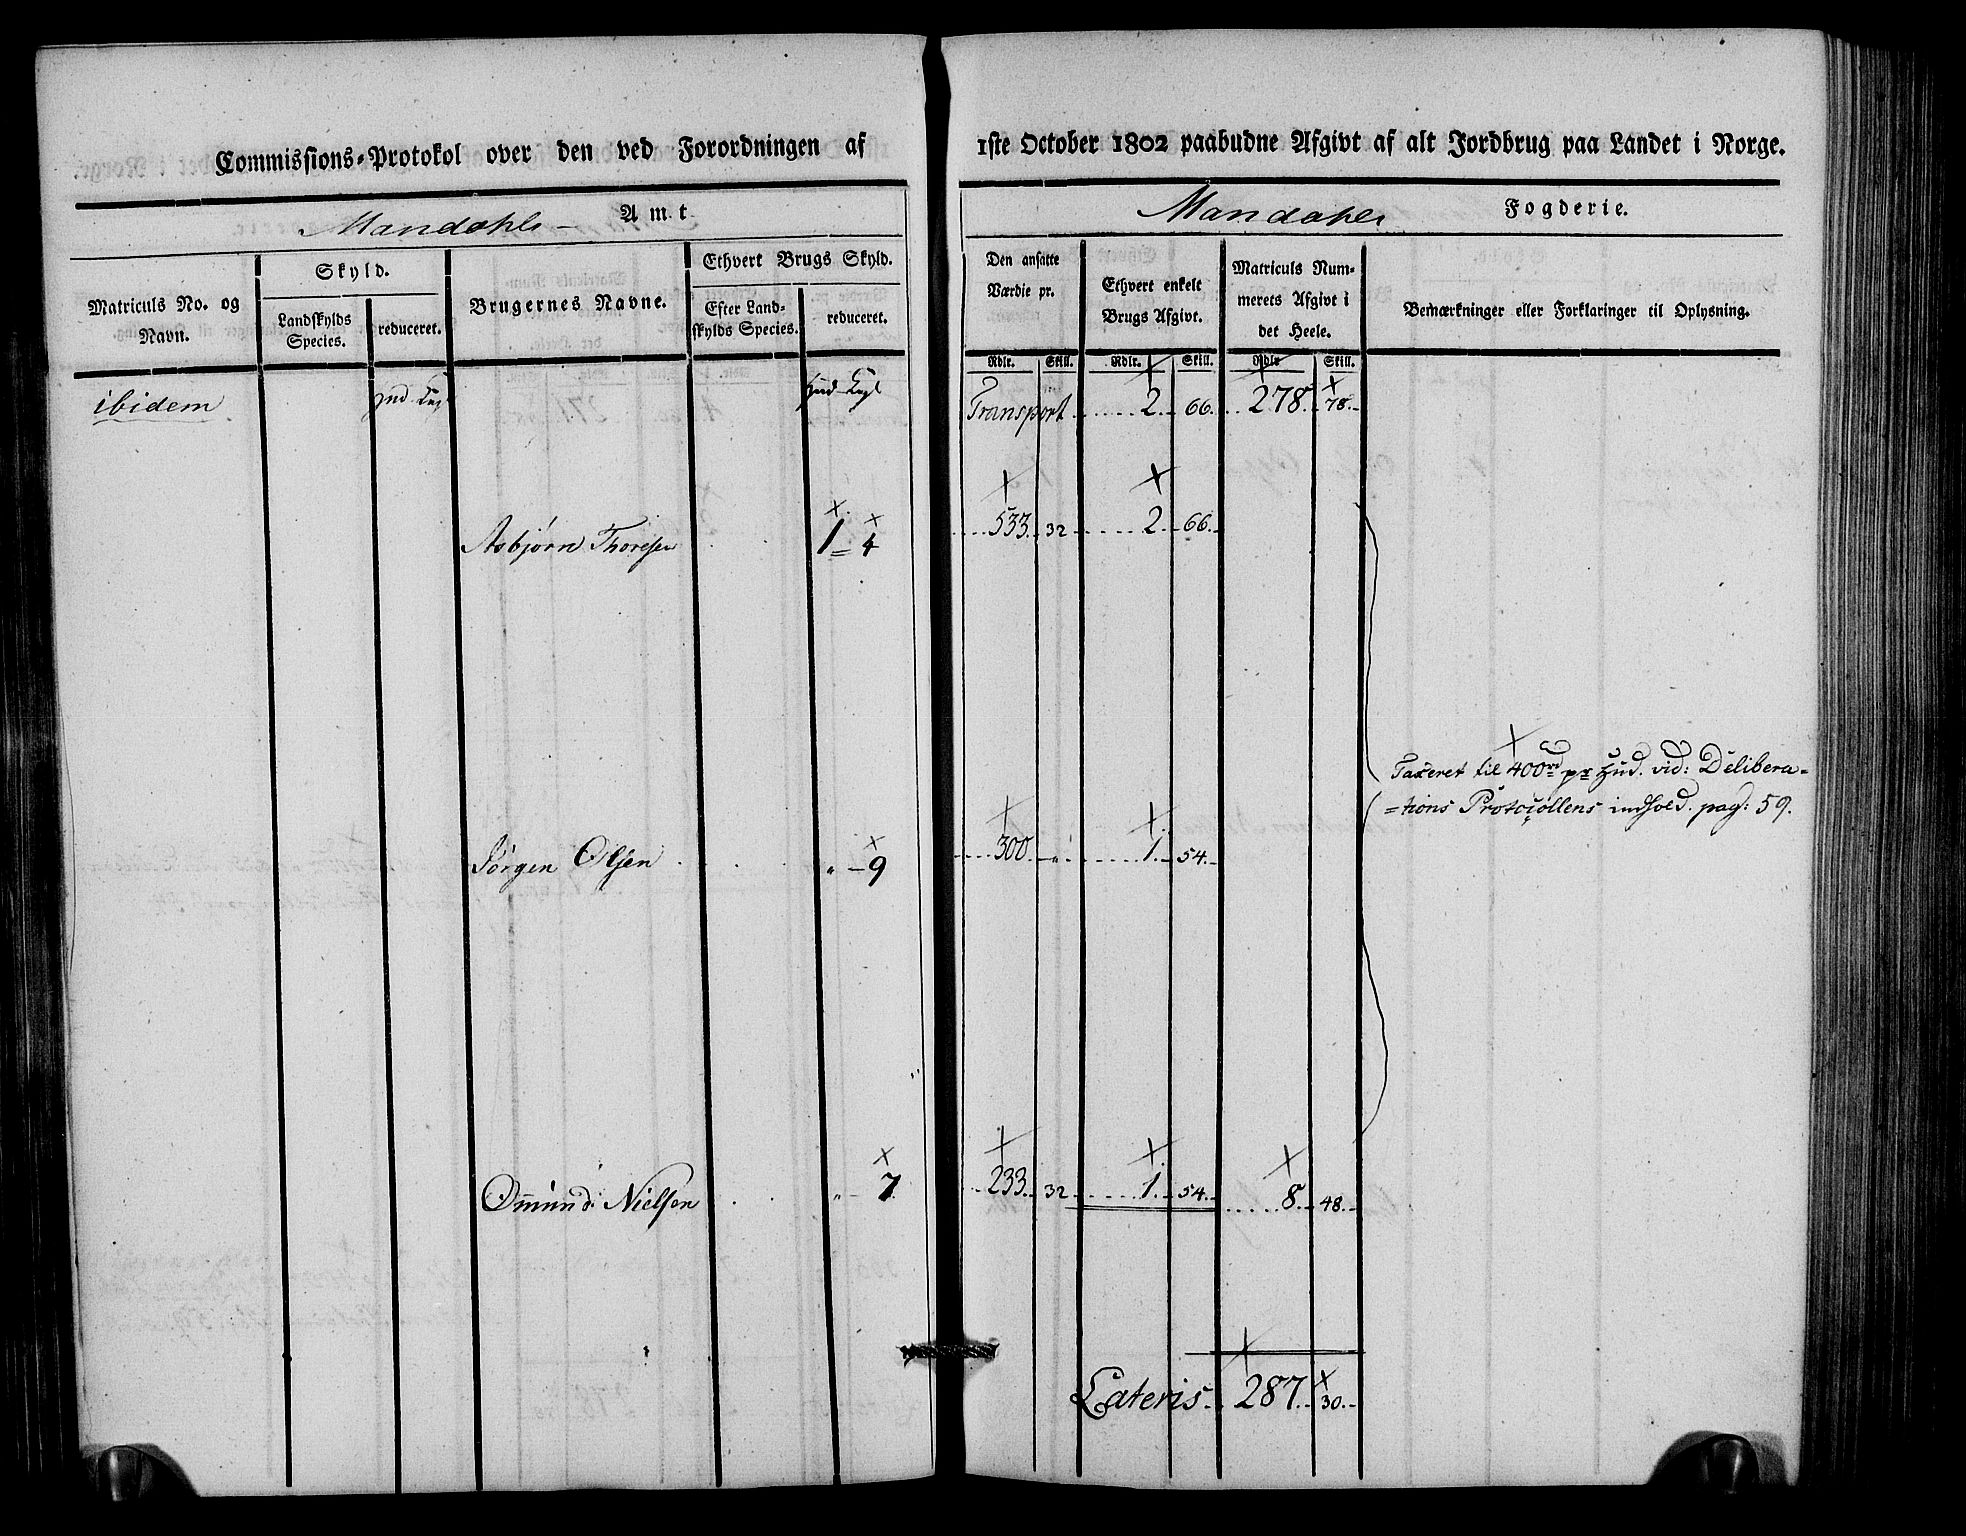 Commissions-Protokol over den ved Forordningen af 1ste October 1802 paabudne Afgivt af alt Jordbrug paa Landet i Norge.
Mandahls Amt
Mandahls Fogderie.
Matriculs No. og Navn.
Skyld.
Landskylds Species.
reduceret.
Brugernes Navne.
Ethvert Brugs Skyld.
Efter Landskylds Species.
reduceret.
Den ansatte Værdie pr.
Ethvert enkelt Brugs Afgivt.
Matriculs Nummerets Afgivt i det Heele.
Bemærkninger eller Forklaringer til Oplysning.
Rdlr. Skill. Rdlr. Skill. Rdlr. Skill.
ibidem Hud Kal Hud Kal Transport 2 66 278 78
Asbjørn Thoresen 1 = 4 533 32 2 66
Taxeret til 400rd pr Hud. vid: Delibera=
=tions Protocollens indhold. pag: 59.
Jørgen Olsen " 9 300 " 1 54
Omund Nielsen " 7 233 32 1 54 8 48
Lateris 287 30